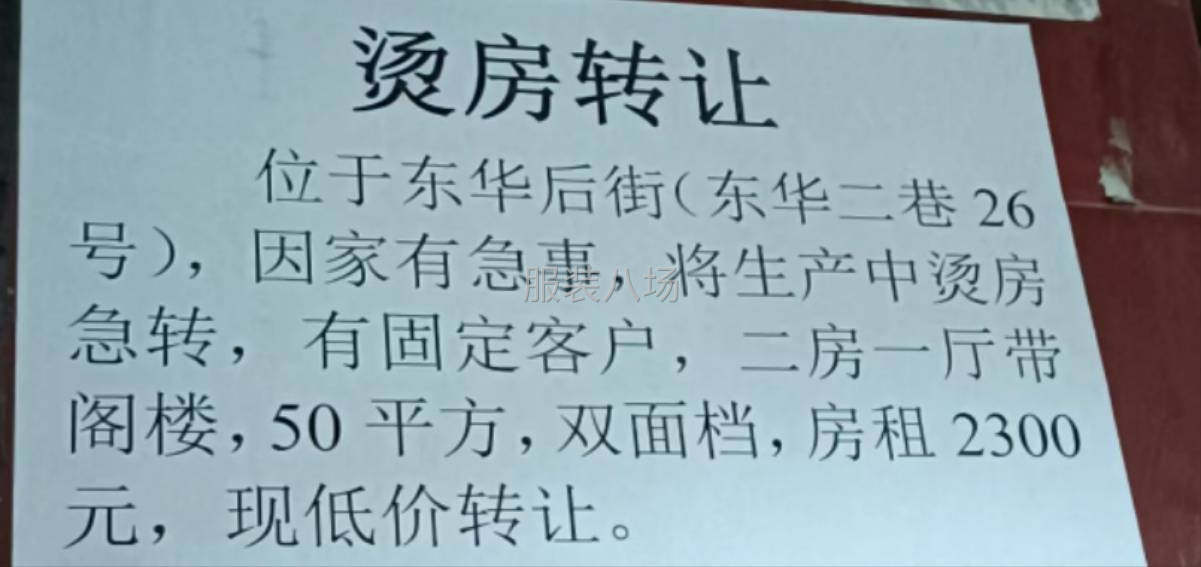 烫房转让
位于东华后街(东华二巷26
号),因家有急事,将生产中烫房
急转,有固定客户,二房一厅带
阁楼,50平方,双面档,房租2300
元,现低价转让。
服装八场